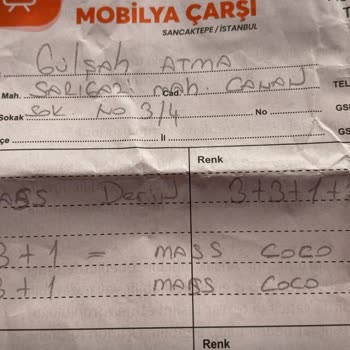 MOBİLYA ÇARŞI
SANCAKTEPE / İSTANBUL
Gülşah ATMA
Mah. SARIGAZİ mah. Cad. CANAN TEL
Sokak Sok. NO 3/4 No GS
çe İl GS
Renk
ASS Derin 3+3+1+
3+1 = MASS COCO
3+1 MASS COCO
Renk